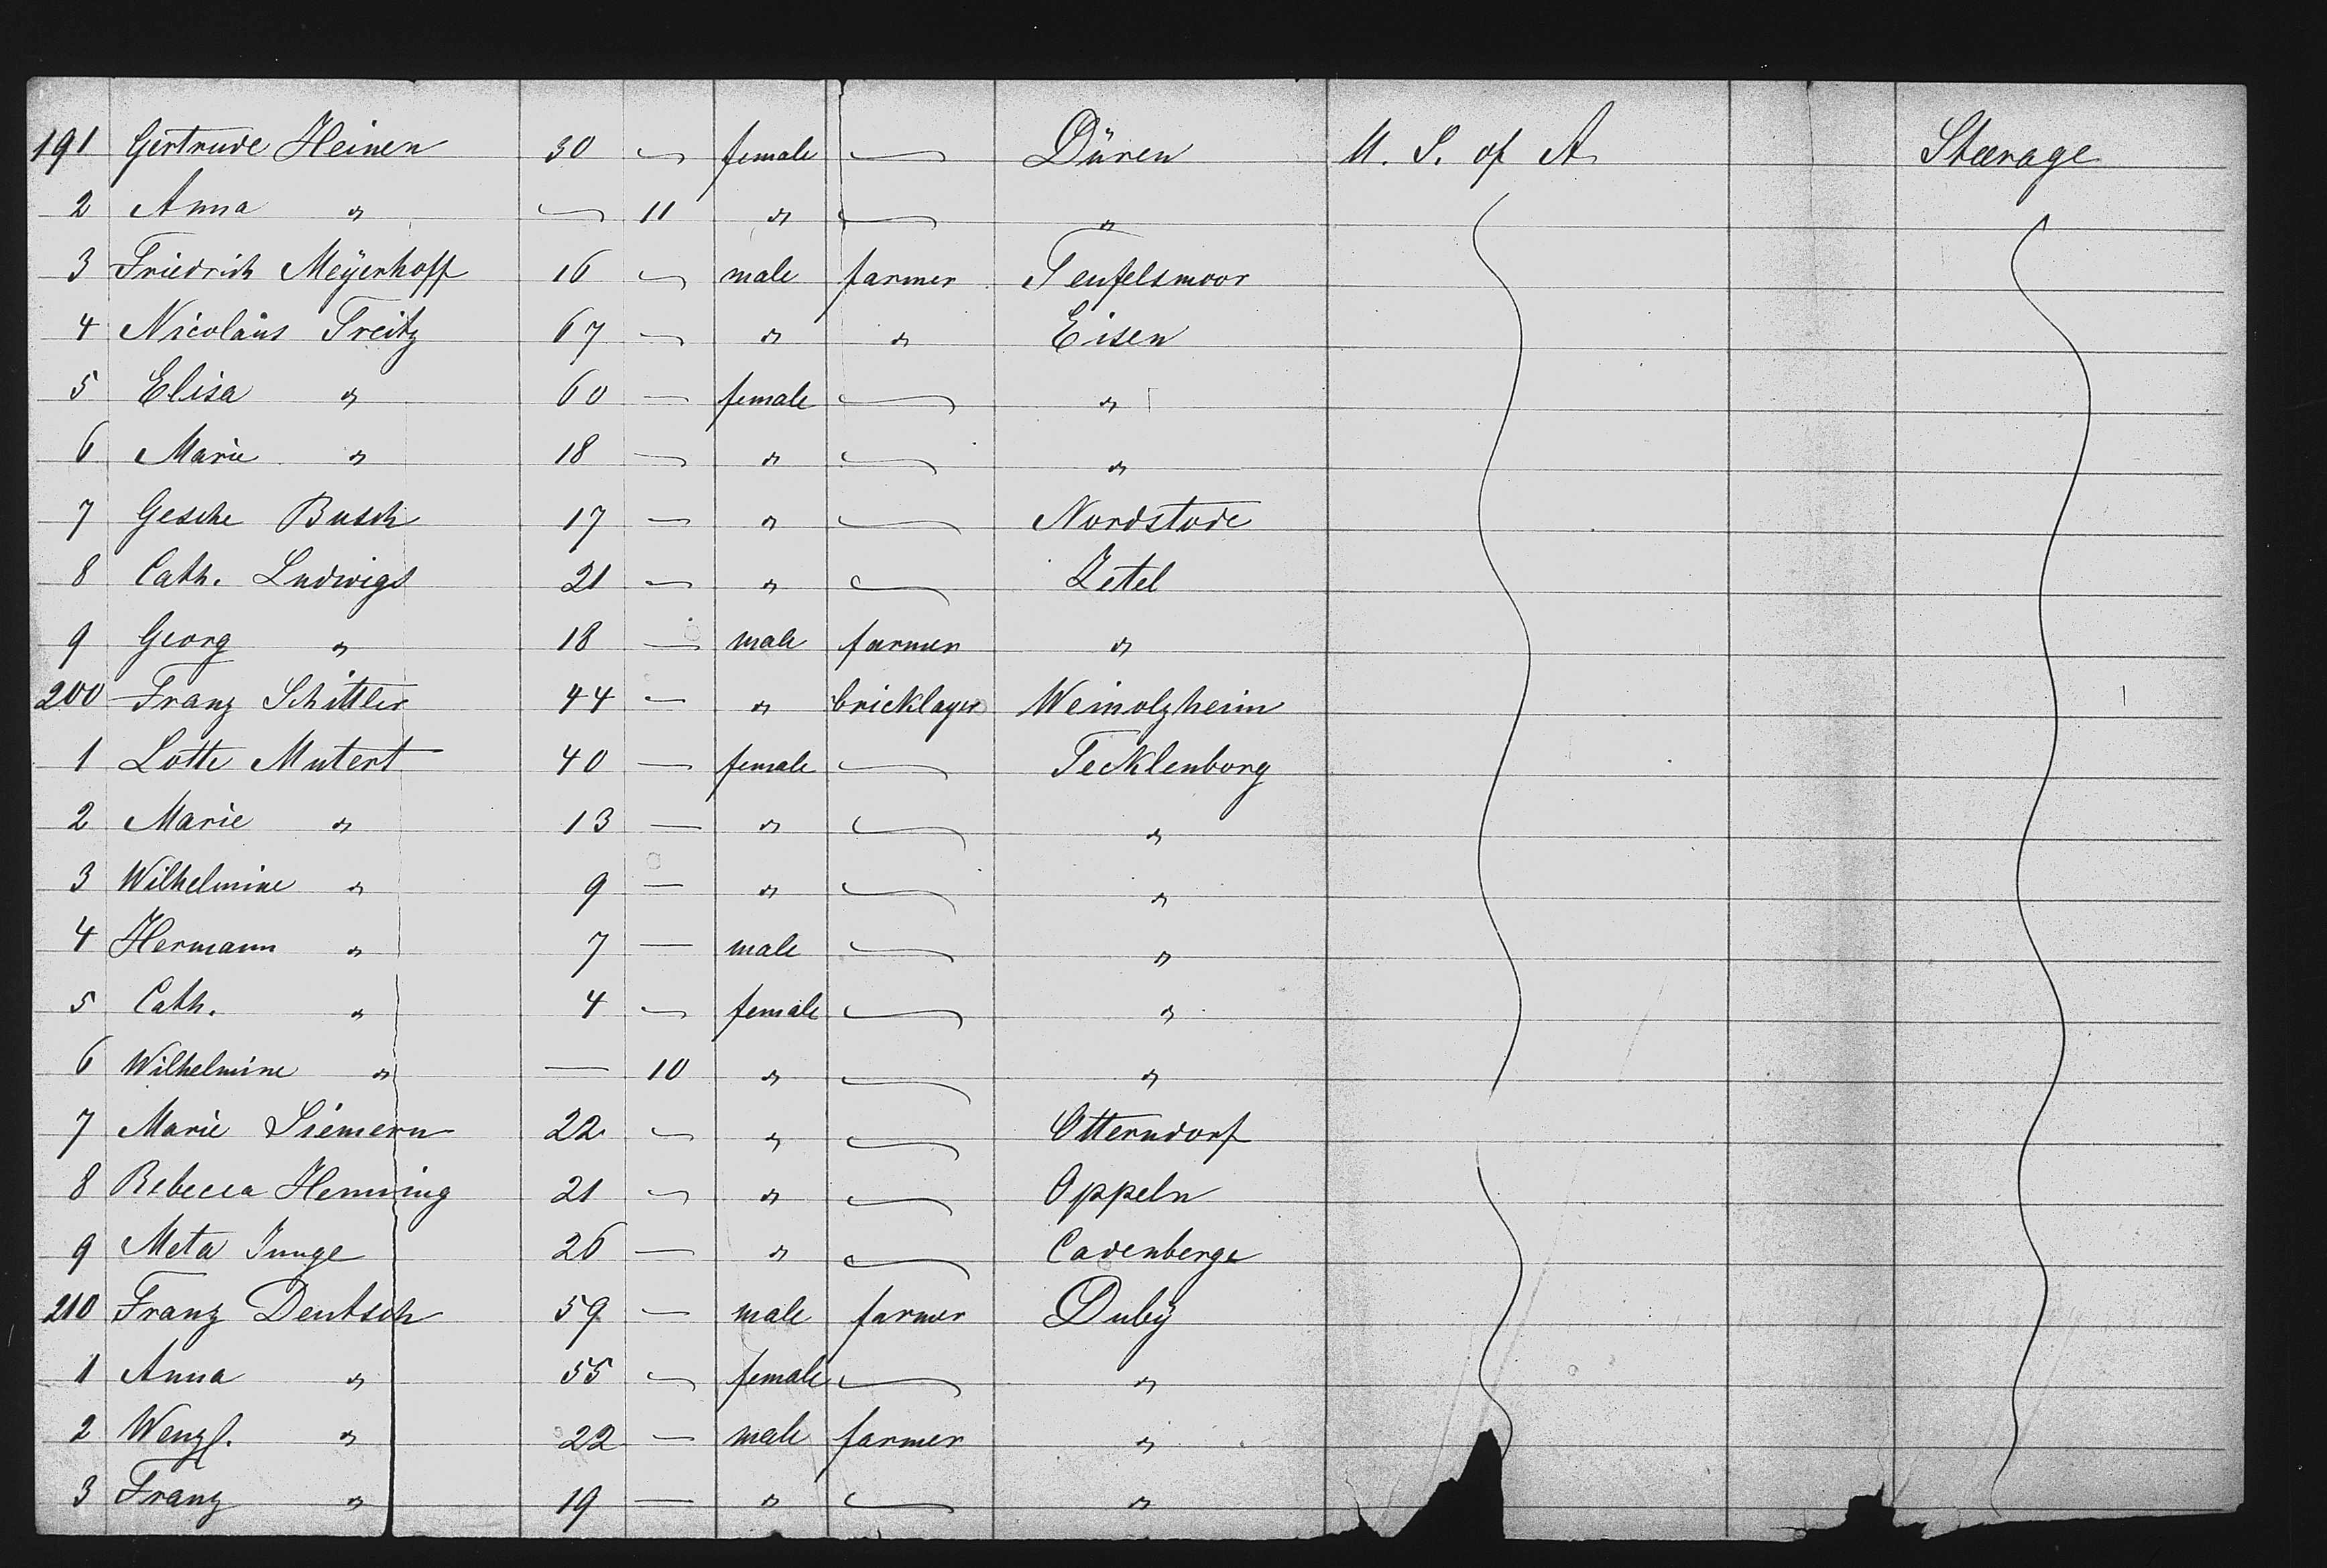 191 Gertrude Heinen 30 — female — Düren U. S. of A. Steerage
2 Anna " — 11 " — "
3 Friedrich Meÿerhoff 16 — male farmer Teufelsmoor
4 Nicolaus Treitz 67 — " " Eisen
5 Elisa " 60 — female — "
6 Marie " 18 — " — "
7 Gesche Busch 17 — " — Nordstode
8 Cath. Ludwigs 21 — " — Zetel
9 Georg " 18 — male farmer "
200 Franz Schittler 44 — " bricklayer Weinolzheim
1 Lotte Mutert 40 — female — Tecklenborg
2 Marie " 13 — " — "
3 Wilhelmine " 9 — " — "
4 Hermann " 7 — male — "
5 Cath. " 4 — female — "
6 Wilhelmine " — 10 " — "
7 Marie Siemern 22 — " — Otterndorf
8 Rebecca Henning 21 — " — Oppeln
9 Meta Junge 26 — " — Cadenberge
210 Franz Deutsch 59 — male farmer Dubÿ
1 Anna " 55 — female — "
2 Wenzl. " 22 — male farmer "
3 Franz " 19 — " — "